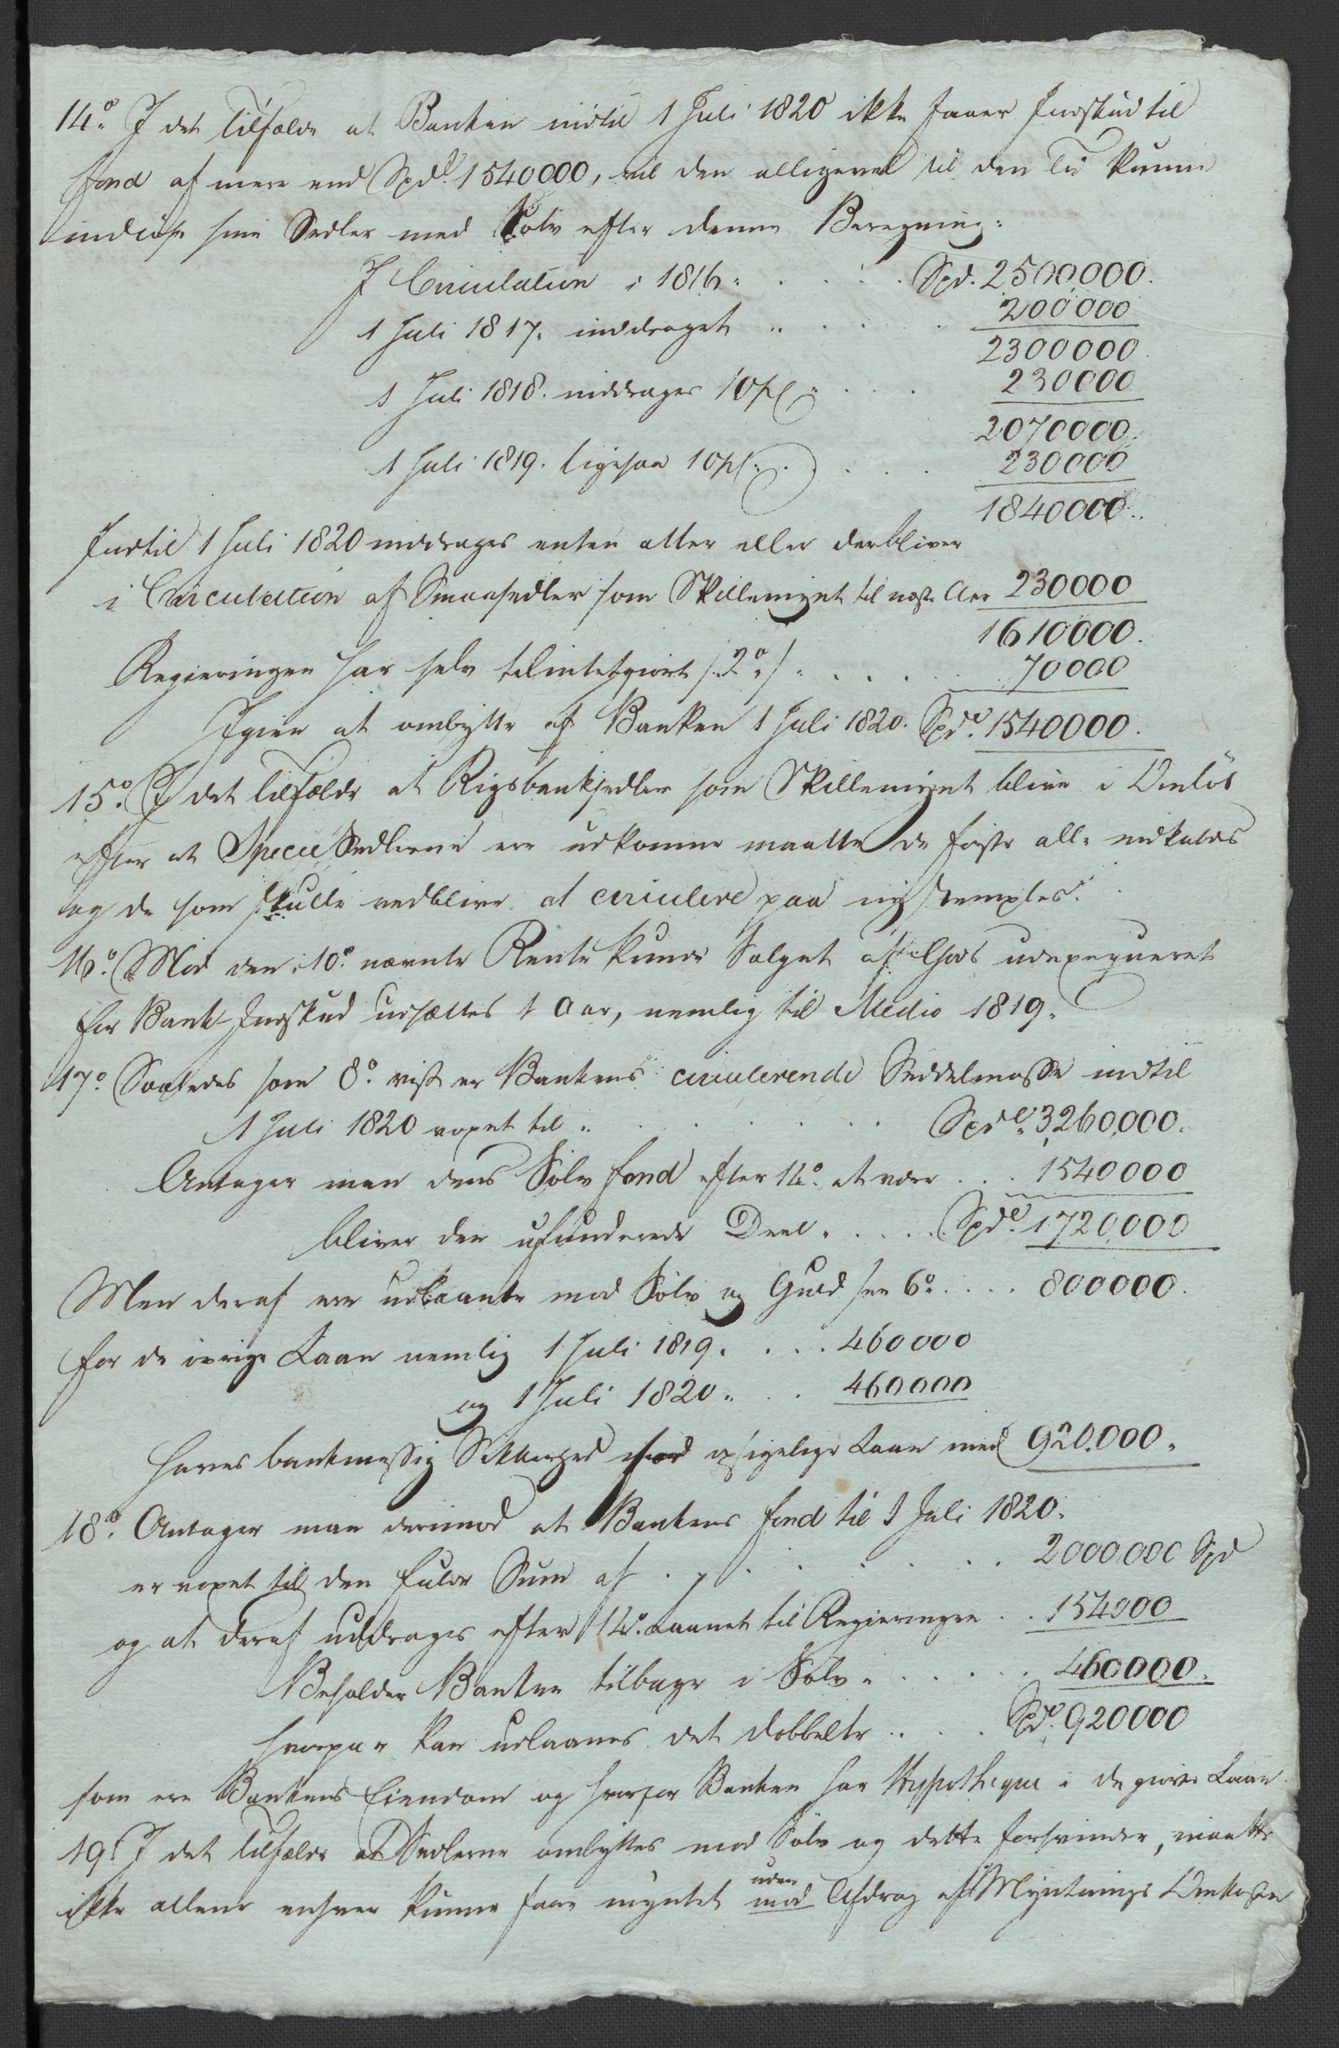 14º I det Tilfælde at Banken indtil 1 Juli 1820 ikke faaer Indskud til
fond af mere end Spd. 1540000, vil den alligevel til den Tid kunne
indløse sine Sedler med Sølv efter denne Beregning:
I Circulation i 1816. . . . . . Spd. 2500000.
1 Juli 1817. inddraget . . . . . 200000
2300000.
1 Juli 1818. inddrages 10 pC. . . . 230000
2070000.
1 Juli 1819. ligesaa 10 pC. . . . . 230000
1840000.
Indtil 1 Juli 1820 inddrages enten atter eller der bliver
i Circulation af Smaasedler som Skillemynt til næste Aar 230000
1610000.
Regieringen har selv tilintetgiort /.2º./. . . . . . 70000
Igien at ombytte af Banken 1 Juli 1820. Spd. 1540000.
15º. I det Tilfælde at Rigsbanksedler som Skillemynt blive i Omløb
efter at Specie Sedlerne ere udkomne maatte de første alle indkaldes
og de som skulle vedblive at circulere paa ny stemples.
16º. Mod den i 10º. nævnte Rente kunde Salget af Gods udexeqveret
for Bank-Indskud udsættes 1 Aar, nemlig til Medio 1819.
17º Saaledes som 8º. vist er Bankens circulerende Seddelmasse indtil
1 Juli 1820 voxet til . . . . . . . . Spd. 3,260,000.
Antager man dens Sølv fond efter 14º. at være . . . 1540000
bliver den ufunderede Deel . . . . . Spd. 1,720,000
Men deraf ere udlaante mod Sølv og Guld see 6º. . . . 800000.
for de øvrige Laan nemlig 1 Juli 1819. . . . 460000
og 1 Juli 1820. . . . 460000
haves bankmæssig Sikkerhed ved opsigelige Laan med 920.000.
18º. Antager man derimod at Bankens fond til 1 Juli 1820.
er voxet til den fulde Sum af . . . . . . . . 2000,000 Spd
og at deraf uddrages efter 14º. Laanet til Regieringen . . 154000
Beholder Banken tilbage i Sølv . . . . . . 460000.
hvorpaa kan udlaanes det dobbelte . . . . Spd. 920000
som ere Bankens Eiendom og hvorfor Banken har Hypotheque i de giorte Laan.
19º I det Tilfælde at Sedlerne ombyttes mod Sølv og dette forsvinder, maatte
uden
ikke allene enhver kunne faae myntet mod Afdrag af Myntnings Omkostn